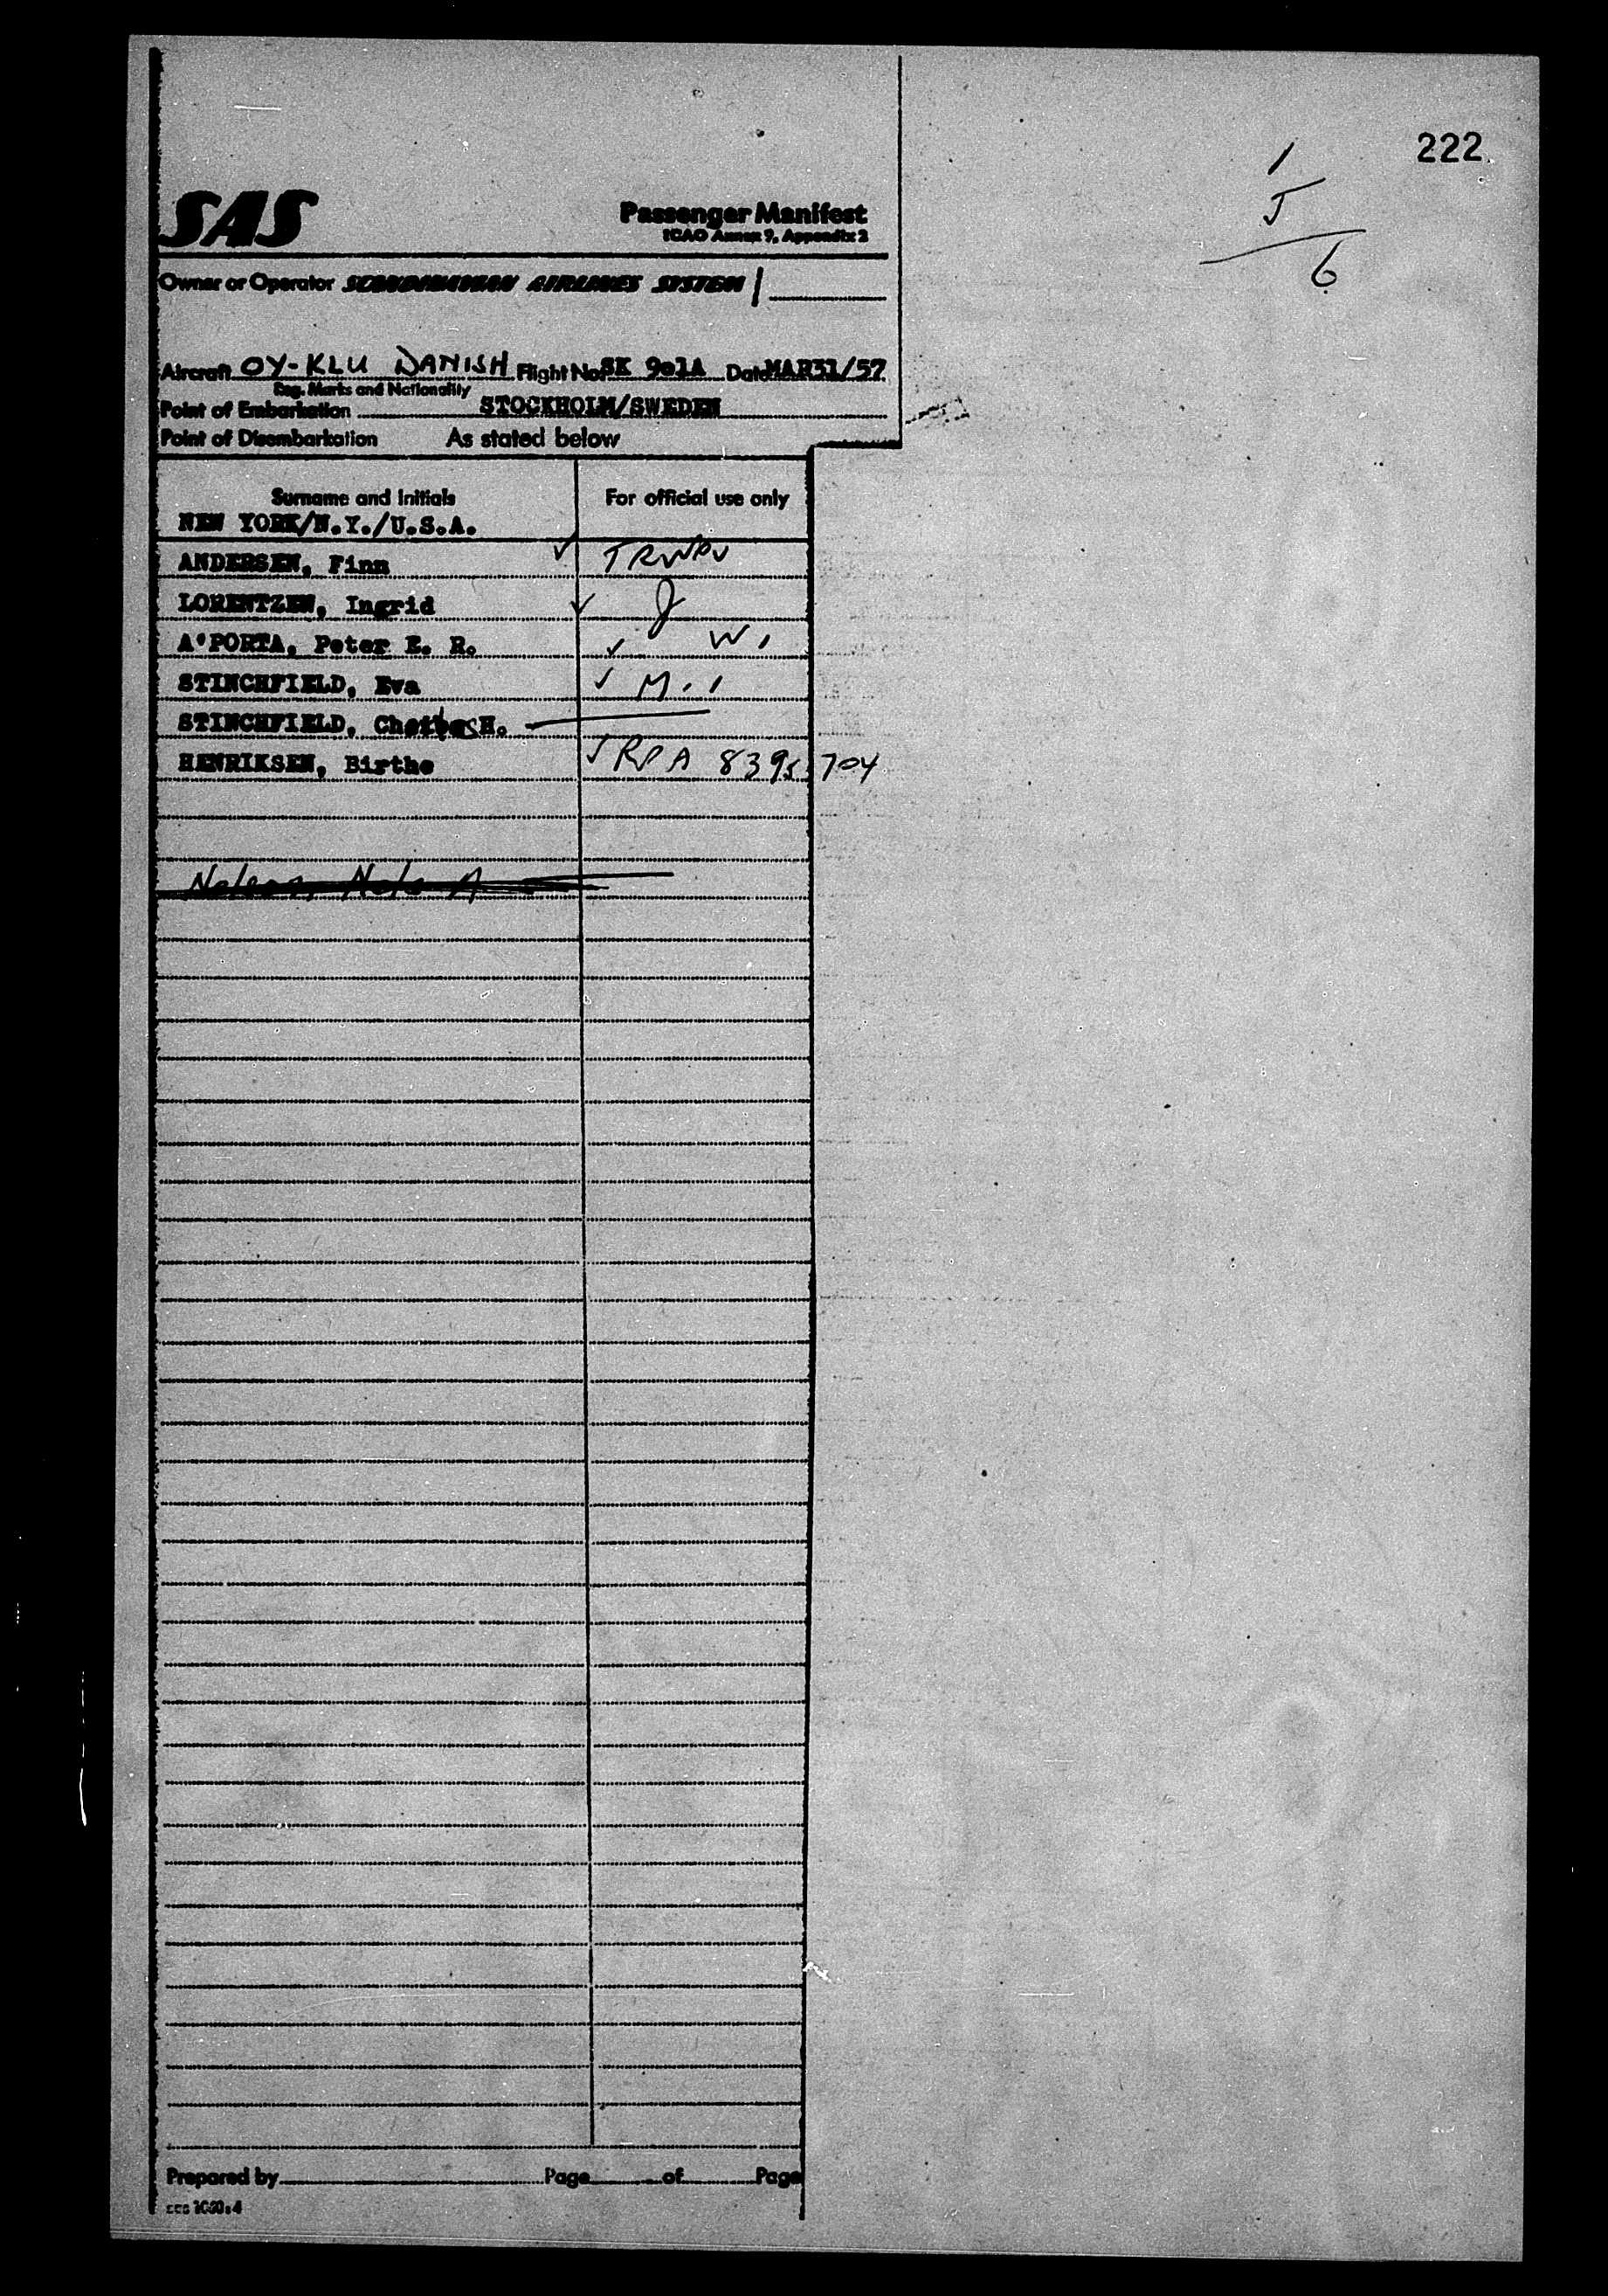 222
1
5
6
SAS
Passenger Manifest
ICAO Annex 9, Appendix 2
Owner or Operator SCANDINAVIAN AIRLINES SYSTEM
Aircraft OY-KLU DANISH Flight No. SK 901A Date MAR31/57
Reg. Marks and Nationality
Point of Embarkation STOCKHOLM/SWEDEN
Point of Disembarkation As stated below
Surname and Initials For official use only
NEW YORK/N.Y./U.S.A.
ANDERSEN, Finn ✓
LORENTZEN, Ingrid ✓
A'PORTA, Peter E. R. ✓ W
STINCHFIELD, Eva ✓ M
STINCHFIELD, H.
HENRIKSEN, Birthe 8395704
Prepared by Page of Page